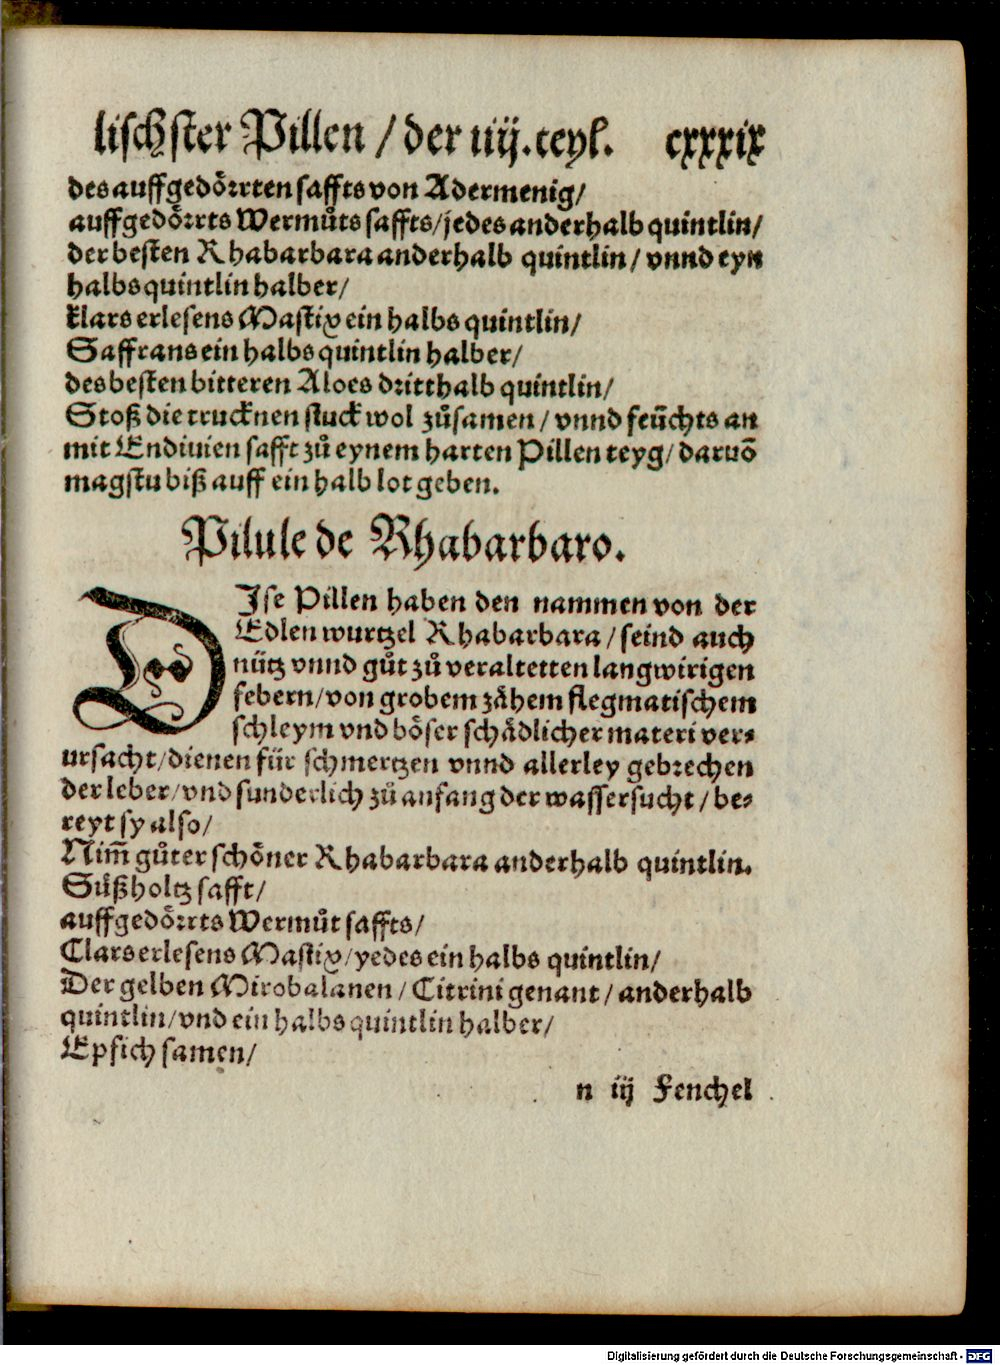 lischster Pillen / der iiij. teyl. cxxxix
des auffgedörrten saffts von Adermenig/
auffgedörrts Wermůts saffts/jedes anderhalb quintlin/
der besten Rhabarbara anderhalb quintlin/ vnnd eyn
halbs quintlin halber/
klars erlesens Mastix ein halbs quintlin/
Saffrans ein halbs quintlin halber/
des besten bitteren Aloes dritthalb quintlin/
Stoß die trucknen stuck wol zůsamen / vnnd feüchts an
mit Endiuien safft zů eynem harten Pillen teyg/ daruõ
magstu biß auff ein halb lot geben.
Pilule de Rhabarbaro.
DIse Pillen haben den nammen von der
Edlen wurtzel Rhabarbara / seind auch
nütz vnnd gůt zů veraltetten langwirigen
febern/von grobem zåhem flegmatischem
schleym vnd böser schådlicher materi ver⸗
ursacht/dienen für schmertzen vnnd allerley gebrechen
der leber/vnd sunderlich zů anfang der wassersucht / be⸗
reyt sy also/
Nim̃ gůter schöner Rhabarbara anderhalb quintlin.
Süßholtz safft/
auffgedörrts Wermůt saffts/
Clars erlesens Mastix/yedes ein halbs quintlin/
Der gelben Mirobalanen / Citrini genant / anderhalb
quintlin/vnd ein halbs quintlin halber/
Epsich samen/
n iij Fenchel
Digitalisierung gefördert durch die Deutsche Forschungsgemeinschaft - DFG